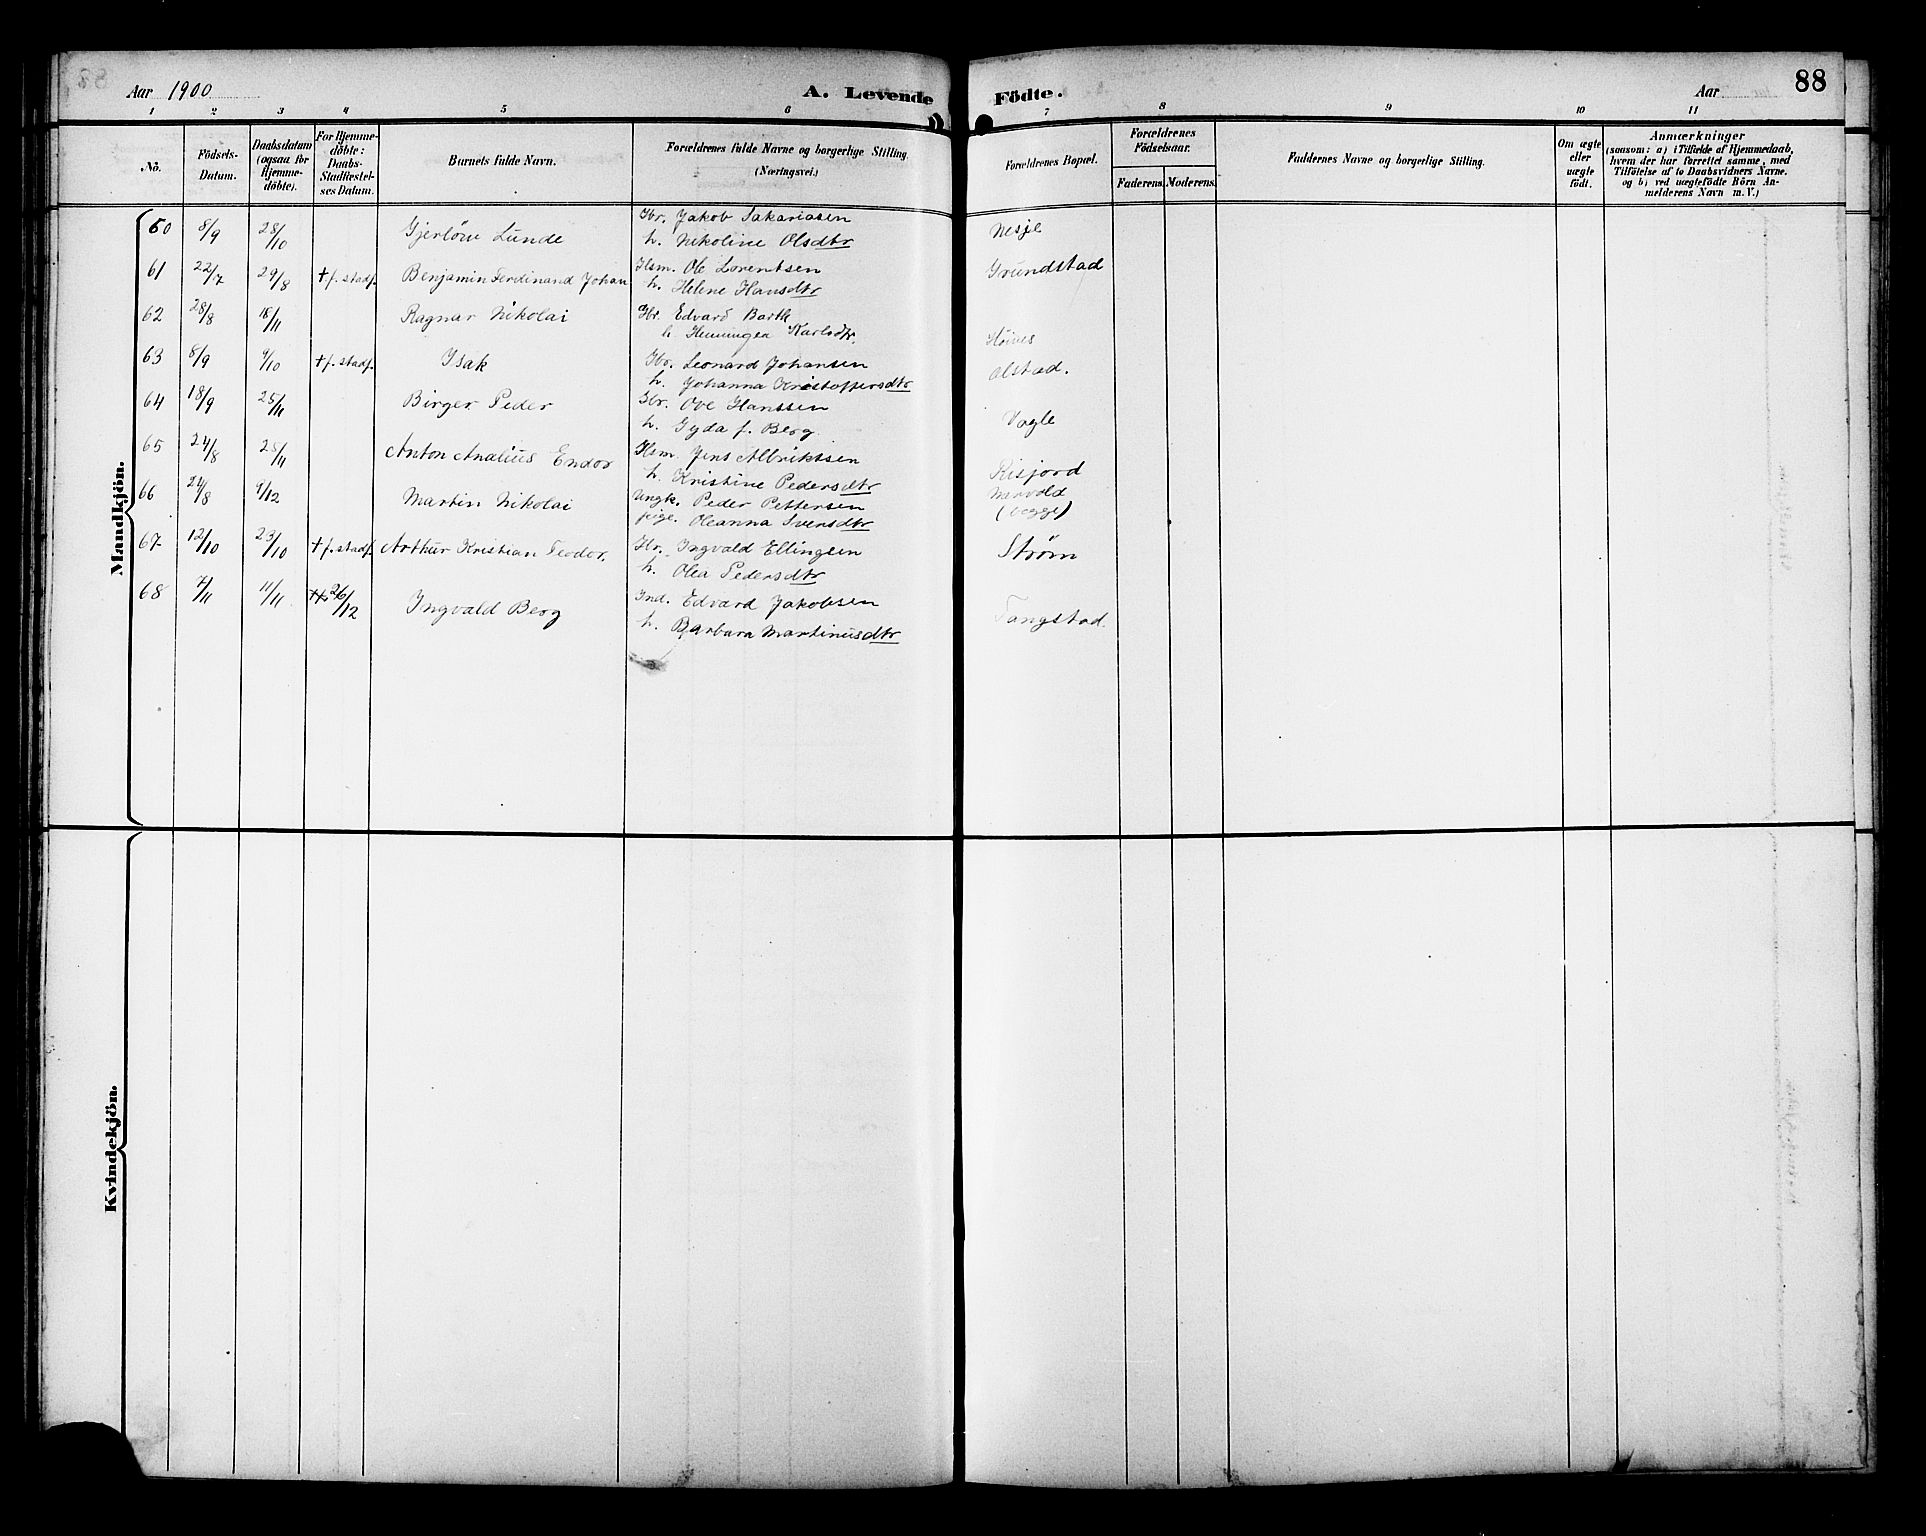 Aar 1900 A. Levende Födte. Aar 88
1 2 3 4 5 6 7 8 9 10 11
No. Födsels-Datum. Daabsdatum (ogsaa for Hjemme-döbte). For Hjemme-döbte: Daabs-Stadfæstel-ses Datum. Barnets fulde Navn. Forældrenes fulde Navne og borgerlige Stilling (Næringsvei.) Forældrenes Bopæl. Forældrenes Födselsaar. Faderens. Moderens. Faddernes Navne og borgerlige Stilling. Om ægte eller uægte födt. Anmærkninger (saasom: a) i Tilfælde af Hjemmedaab, hvem der har forrettet samme, med Tilföielse af to Daabsvidners Navne. og b) ved uægtefödte Börn An-melderens Navn m. V.)
Mandkjön.
60 8/9 28/10 Gjerløw Lunde Gbr. Jakob Sakariasen
h. Nikoline Olsdtr Nesje
61 22/7 29/8 + f. stadf. Benjamin Ferdinand Johan Hsm. Ole Lorentsen Grundstad
h. Helene Hansdtr
62 28/8 18/11 Ragnar Nikolai Gbr. Edvard Barth
h. Henningea Karlsdtr.
63 8/9 9/10 + f. stadf. Isak Gbr. Leonard Johansen Olstad.
h. Johanna Kristoffersdtr
64 18/9 25/11 Birger Peder Gbr. Ove Hanssen
h. Gyda f. Berg. Vagle
65 24/8 25/11 Anton Analius Endor Hsm. Jens Albriktsen
h. Kristine Pedersdtr Risjord
66 24/8 9/12 Martin Nikolai Ungk. Peder Pettersen Nervold
pige. Oleanna Iversdtr (begge)
67 12/10 23/10 + f. stadf. Arthur Kristian Teodor. Gbr. Ingvald Ellingsen Strøm
h. Olea Pedersdtr
68 7/11 11/11 26/12 Ingvald Berg Ind. Edvard Jakobsen Tangstad.
h. Barbara Martinusdtr
Kvindekjön.